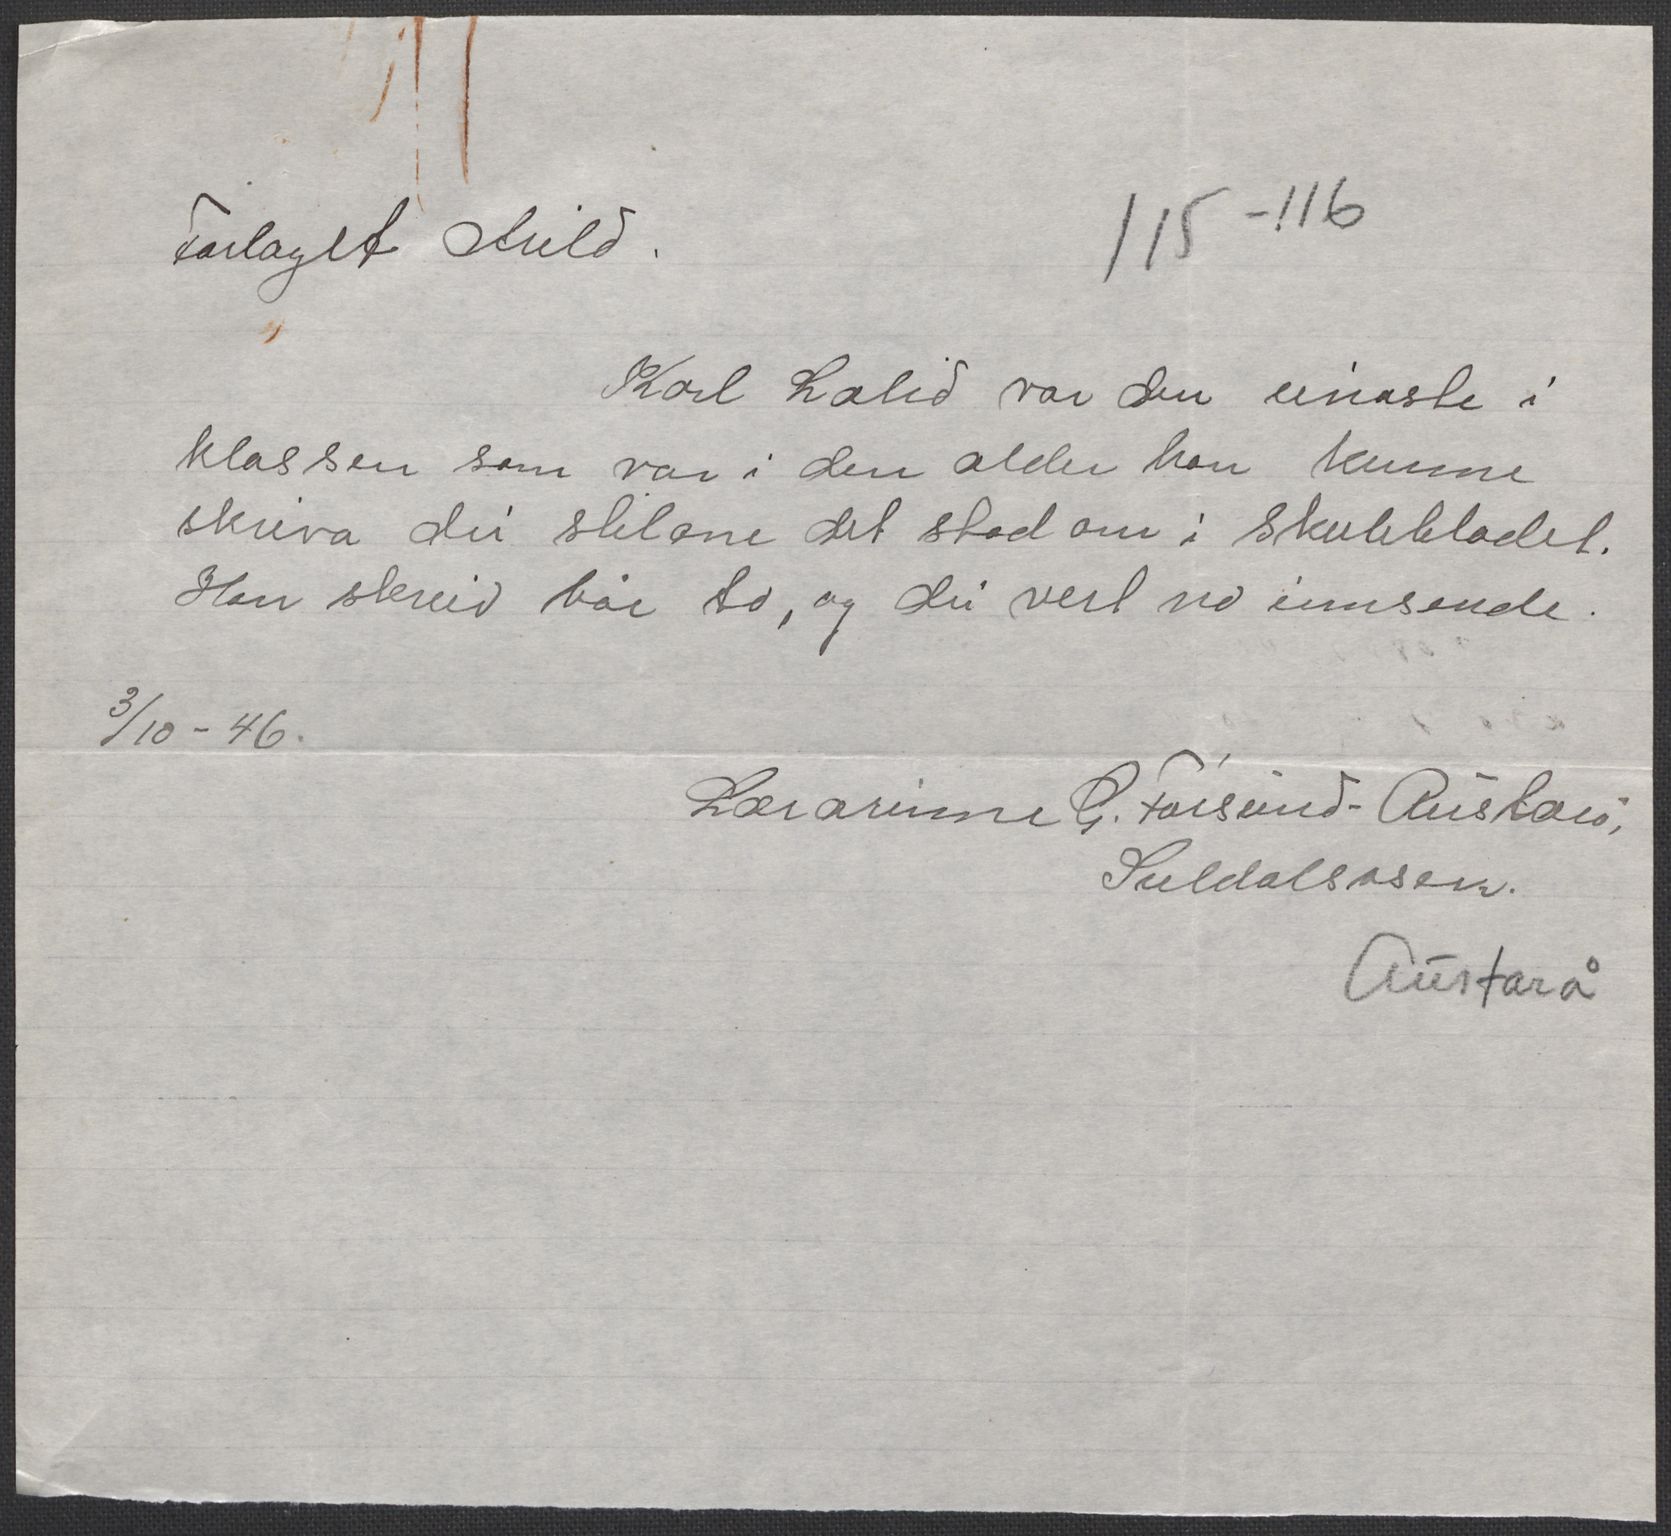 Forlaget Arild.
115-116
Karl Lalid var den einaste i
klassen som var i den alder han kunne
skriva dei stilane det stod om i Skulebladet.
Han skreiv bår to, og dei vert no innsende.
3/10-46.
Lærarinne G. Førsund-Austarå,
Suldalsosen.
Austarå